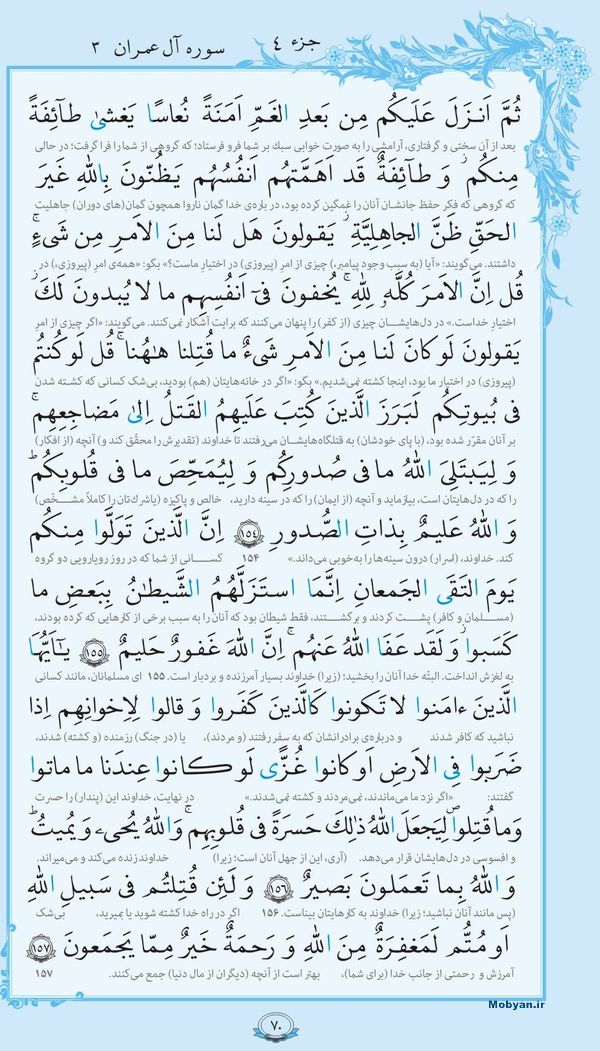 جزء ٤
سوره آل عمران ٣
ثُمَّ اَنزَلَ عَلَيكُم مِن بَعدِ الغَمِّ اَمَنَةً نُعاسًا يَغشىٰ طآئِفَةً
بعد از آن سختی و گرفتاری، آرامشی را به صورت خوابی سبک بر شما فرو فرستاد؛ که گروهی از شما را فرا گرفت؛ در حالی
مِنكُم وَ طآئِفَةٌ قَد اَهَمَّتهُم اَنفُسُهُم يَظُنّونَ بِاللهِ غَيرَ
که گروهی که فکر حفظ جانشان آنان را غمگین کرده بود، درباره‌ی خدا گمان ناروا همچون گمان(های دوران) جاهلیت
الحَقِّ ظَنَّ الجاهِليَّةِ يَقولونَ هَل لَنا مِنَ الاَمرِ مِن شَیءٍ
داشتند. می‌گویند: «آیا (به سبب وجود پیامبر،) چیزی از امر (پیروزی) در اختیار ماست؟» بگو: «همه‌ی امر (پیروزی،) در
قُل اِنَّ الاَمرَ كُلَّه لِلّٰهِ يُخفونَ فی اَنفُسِهِم ما لا يُبدونَ لَكَ
اختیار خداست.» در دل‌هایشان چیزی (از کفر) را پنهان می‌کنند که برایت آشکار نمی‌کنند. می‌گویند: «اگر چیزی از امر
يَقولونَ لَو كانَ لَنا مِنَ الاَمرِ شَیءٌ ما قُتِلنا هٰهُنا قُل لَو كُنتُم
(پیروزی) در اختیار ما بود، اینجا کشته نمی‌شدیم.» بگو: «اگر در خانه‌هایتان (هم) بودید، بی‌شک کسانی که کشته شدن
فی بُيوتِكُم لَبَرَزَ الَّذينَ كُتِبَ عَلَيهِمُ القَتلُ اِلىٰ مَضاجِعِهِم
بر آنان مقرّر شده بود، (با پای خودشان) به قتلگاه‌هایشان می‌رفتند تا خداوند (تقدیرش را محقّق کند و) آنچه (از افکار)
وَ لِيَبتَلِیَ اللهُ ما فی صُدورِكُم وَ لِيُمَحِّصَ ما فی قُلوبِكُم
را که در دل‌هایتان است، بیازماید و آنچه (از ایمان) را که در سینه دارید، خالص و پاکیزه (یا شرکتان را کاملاً مشخّص)
وَ اللهُ عَليمٌ بِذاتِ الصُّدورِ ١٥٤ اِنَّ الَّذينَ تَوَلَّوا مِنكُم
کند. خداوند، (اسرار) درون سینه‌ها را به‌خوبی می‌داند.» ١٥٤ کسانی از شما که در روز رویارویی دو گروه
يَومَ التَقَى الجَمعانِ اِنَّمَا استَزَلَّهُمُ الشَّيطٰنُ بِبَعضِ ما
(مسلمان و کافر) پشت کردند و برگشتند، فقط شیطان بود که آنان را به سبب برخی از کارهایی که کرده بودند،
كَسَبوا وَ لَقَد عَفَا اللهُ عَنهُم اِنَّ اللهَ غَفورٌ حَليمٌ ١٥٥ يٰاَيُّهَا
به لغزش انداخت. البتّه خدا آنان را بخشید؛ (زیرا) خداوند بسیار آمرزنده و بردبار است. ١٥٥ ای مسلمانان، مانند کسانی
الَّذينَ ءامَنوا لا تَكونوا كَالَّذينَ كَفَروا وَ قالوا لِاِخوانِهِم اِذا
نباشید که کافر شدند و درباره‌ی برادرانشان که به سفر رفتند (و مردند)، یا (در جنگ) رزمنده (و کشته) شدند،
ضَرَبوا فِی الاَرضِ اَو كانوا غُزًّى لَو كانوا عِندَنا ما ماتوا
گفتند: «اگر نزد ما می‌ماندند، نمی‌مردند و کشته نمی‌شدند.» در نهایت، خداوند این (پندار) را حسرت
وَما قُتِلوا لِيَجعَلَ اللهُ ذٰلِكَ حَسرَةً فی قُلوبِهِم وَاللهُ يُحیی وَ يُميتُ
و افسوسی در دل‌هایشان قرار می‌دهد. (آری، این از جهل آنان است؛ زیرا) خداوند زنده می‌کند و می‌میراند.
وَ اللهُ بِما تَعمَلونَ بَصيرٌ ١٥٦ وَ لَئِن قُتِلتُم فی سَبيلِ اللهِ
(پس مانند آنان نباشید؛ زیرا) خداوند به کارهایتان بیناست. ١٥٦ اگر در راه خدا کشته شوید یا بمیرید، بی‌شک
اَو مُتُّم لَمَغفِرَةٌ مِنَ اللهِ وَ رَحمَةٌ خَيرٌ مِمّا يَجمَعونَ ١٥٧
آمرزش و رحمتی از جانب خدا (برای شما)، بهتر است از آنچه (دیگران از مال دنیا) جمع می‌کنند. ١٥٧
٧٠
Mobyan.ir